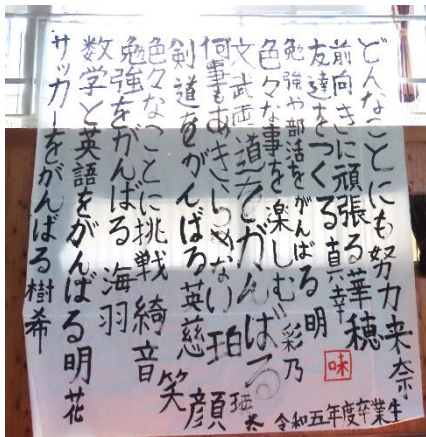 どんなことにも努力来奈
前向きに頑張る華穂
友達をつくる真幸
勉強や部活をがんばる明
色々な事を楽しむ彩乃
文武両道をがんばる
何事もあきらめない珀
剣道をがんばる英慈
色々なことに挑戦綺音
勉強をがんばる海羽
数学と英語をがんばる明花
サッカーをがんばる樹希
笑顔
味
令和五年度卒業生